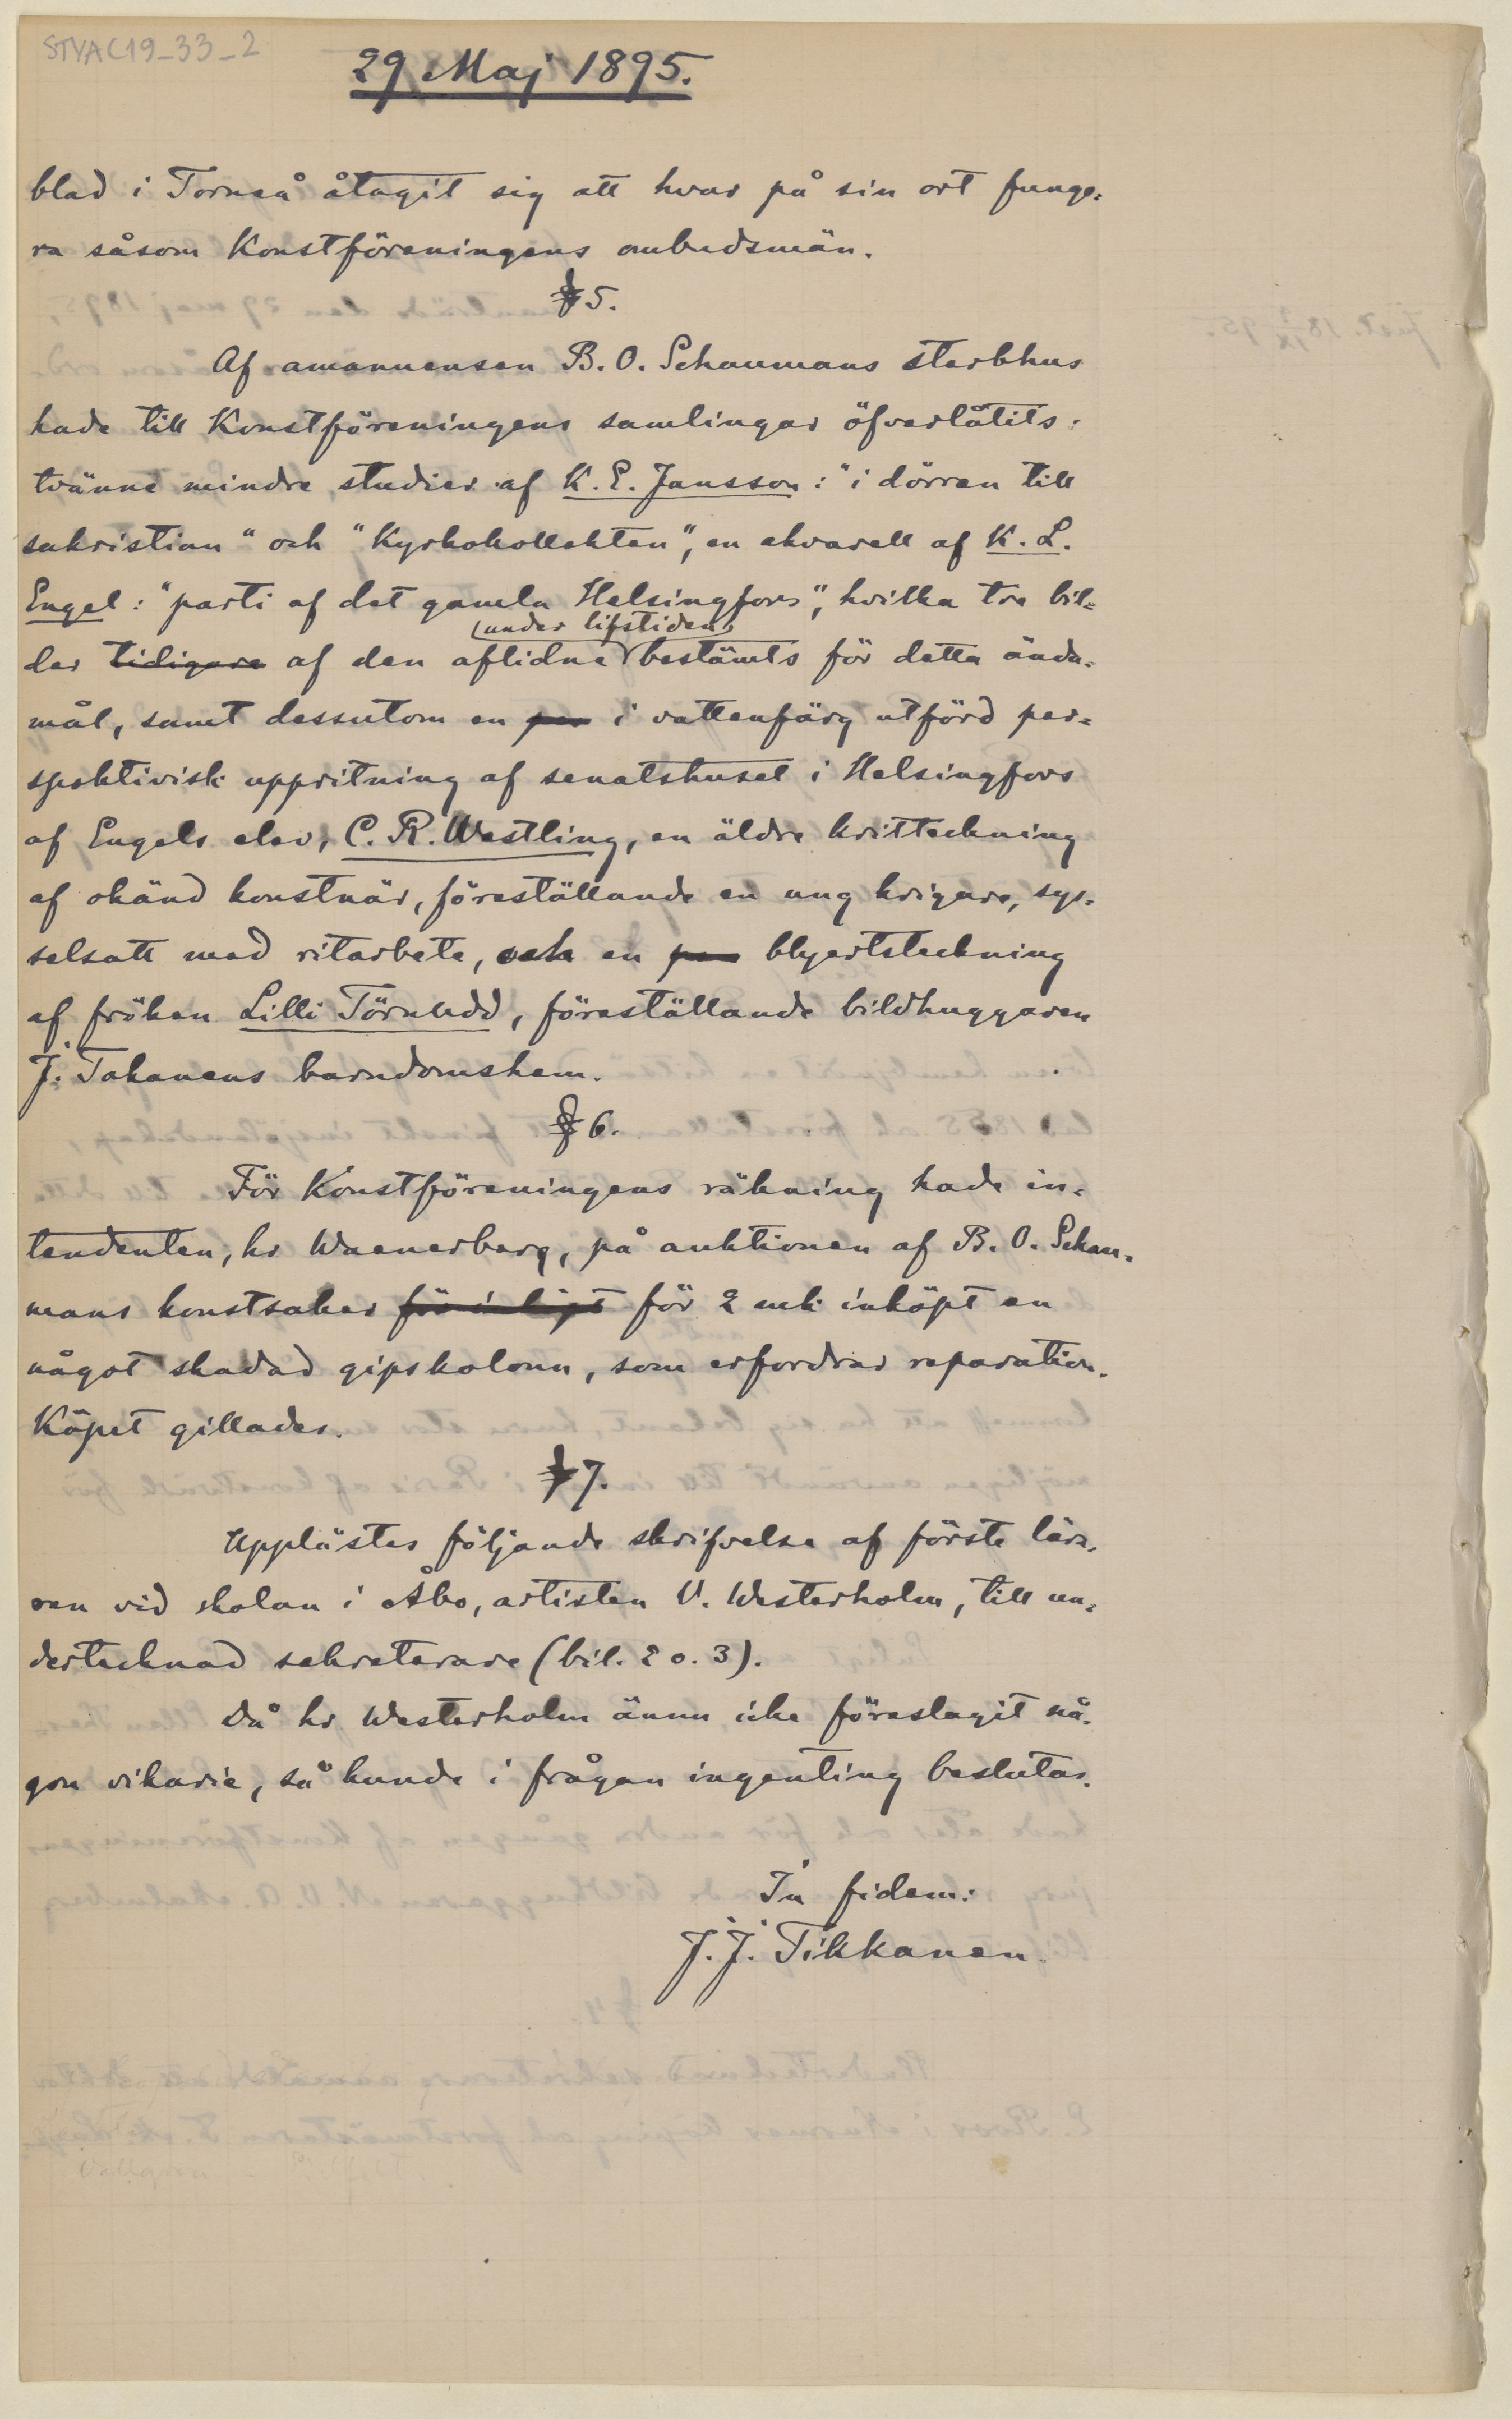 STYAC19_33_2
29 Maj 1895.
blad i Torneå åtagit sig att hvar på sin ort funge=
ra såsom Konstföreningens ombudsmän.
§ 5.
Af amanuensen B. O. Schaumans sterbhus
hade till Konstföreningens samlingar öfverlåtits:
tvänne mindre studier af K. E. Jansson: "i dörren till
sakristian" och "Kyrkokollekten", en akvarell af K. L.
Engel: "parti af det gamla Helsingfors", hvilka tre bil=
(under lifstiden)
der tidigare af den aflidne bestämts för detta ända=
mål, samt dessutom en i vattenfärg utförd per=
spektivisk uppritning af senatshuset i Helsingfors
af Engels elev, C. R. Westling, en äldre kritteckning
af okänd konstnär, föreställande en ung krigare, sys=
selsatt med ritarbete, och en blyertsteckning
af fröken Lilli Törnudd, föreställande bildhuggaren
J. Takanens barndomshem.
§ 6.
För Konstföreningens räkning hade in=
tendenten, hr Waenerberg, på auktionen af B. O. Schau=
mans konstsaker för 2 mk inköpt en
något skadad gipskolonn, som erfordrar reparation.
Köpet gillades.
§ 7.
Upplästes följande skrifvelse af förste lära=
ren vid skolan i Åbo, artisten V. Westerholm, till un=
dertecknad sekreterare (bil. 2 o. 3).
Då hr Westerholm ännu icke föreslagit nå=
gon vikarie, så kunde i frågan ingenting beslutas.
In fidem:
J. J. Tikkanen.